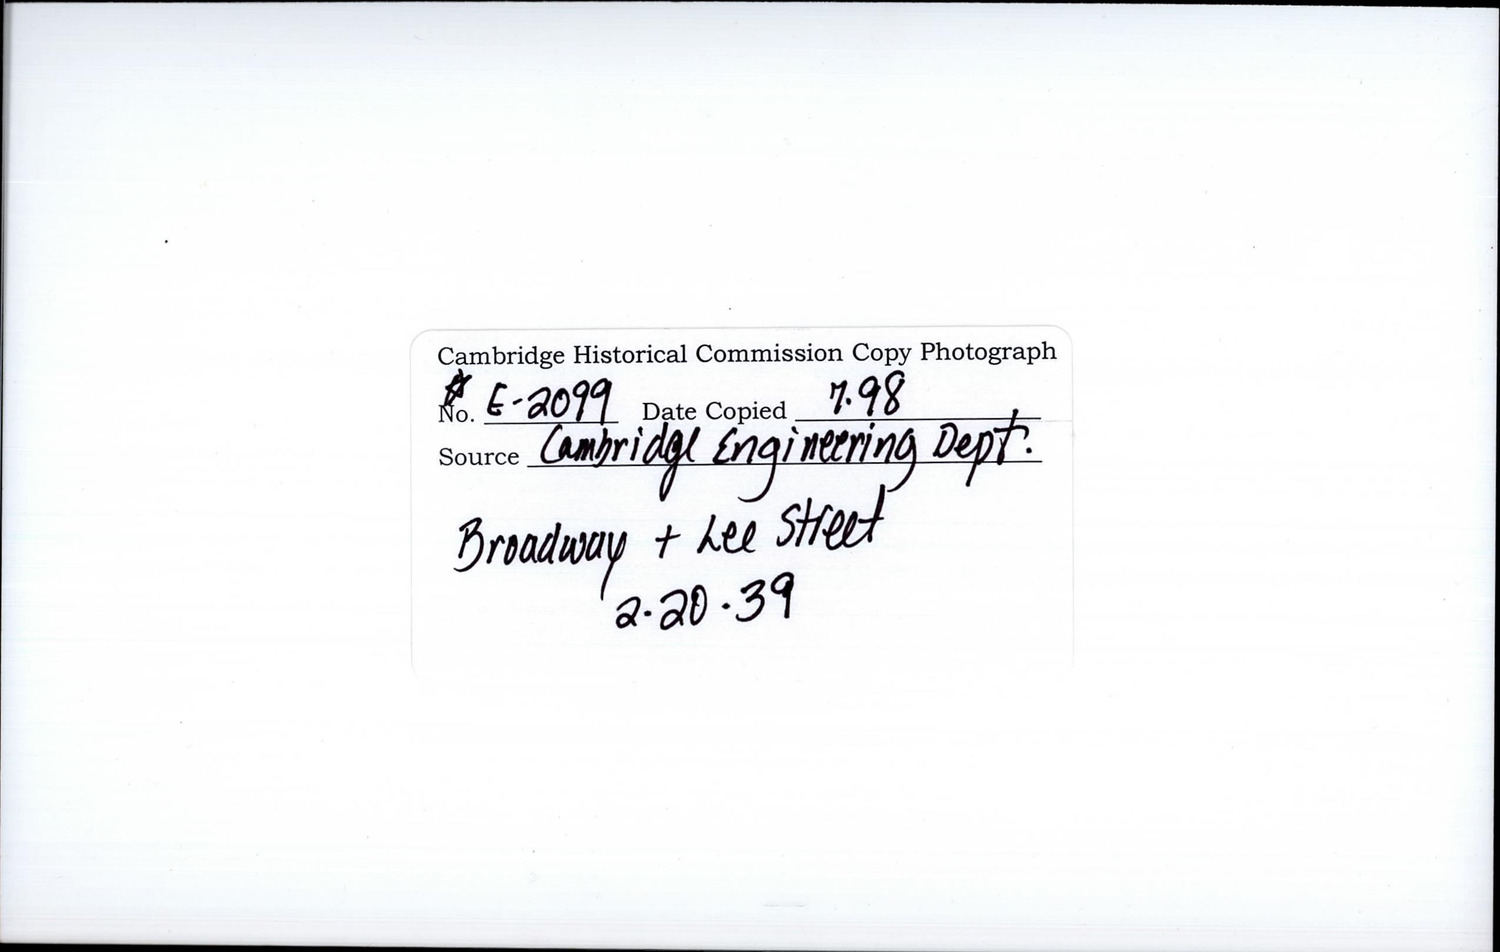 Cambridge Historical Commission Copy Photograph
No. E-2099 Date Copied 7.98
Source Cambridge Engineering Dept.
Broadway + Lee Street
2.20.39